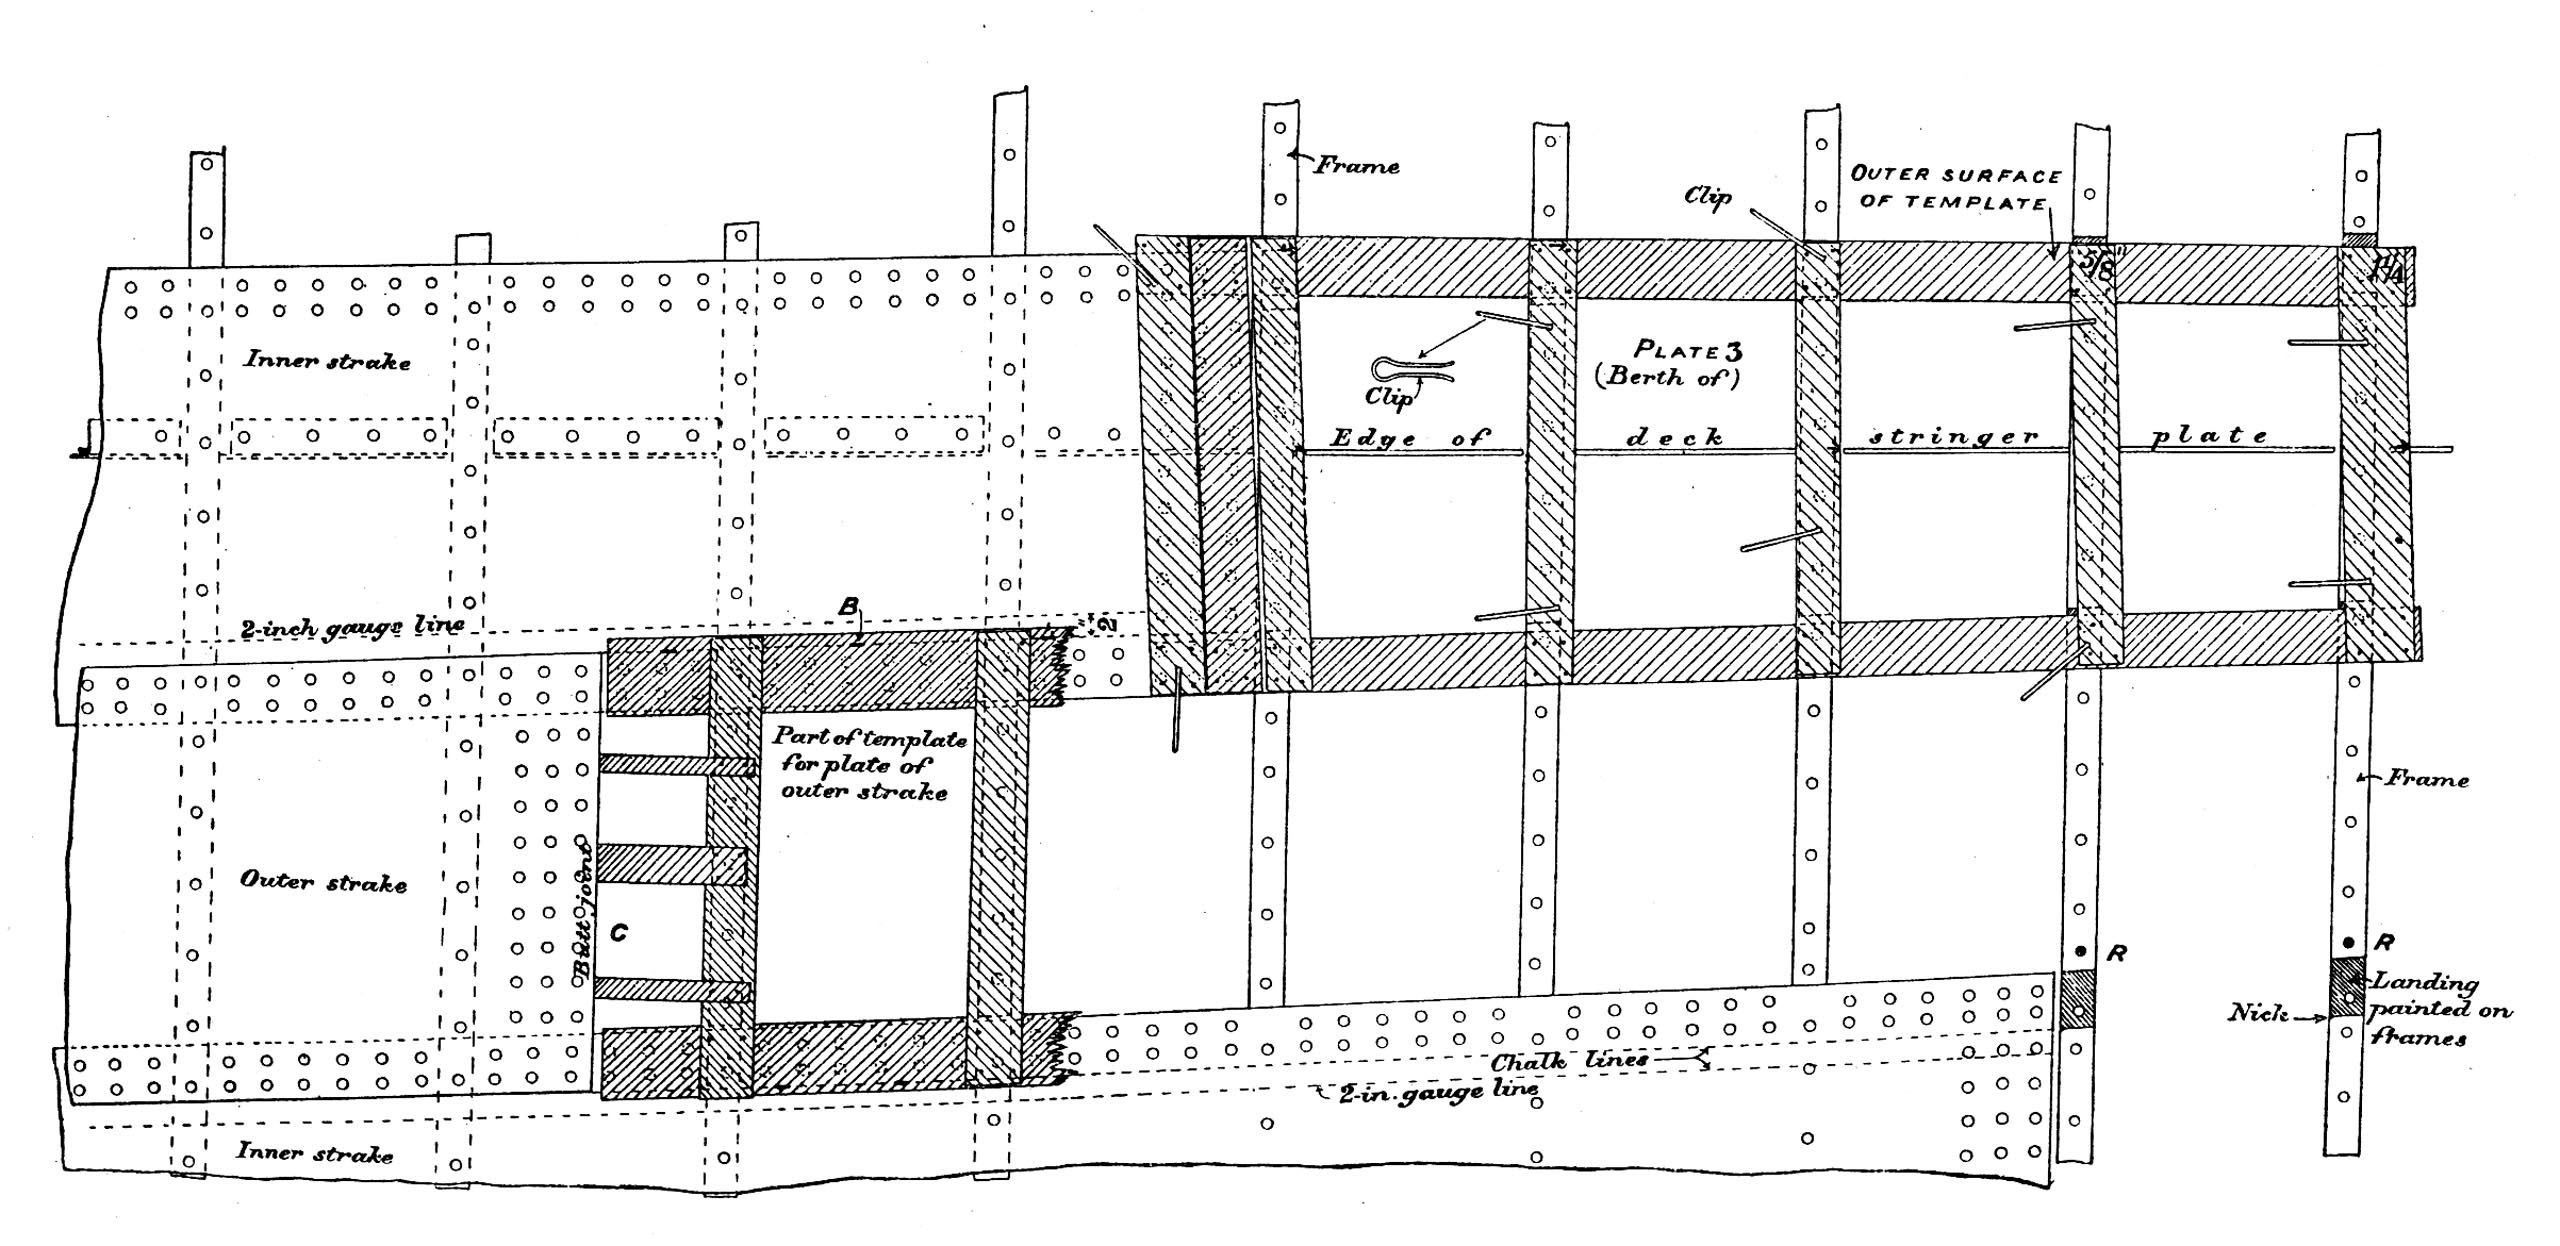 Frame
Clip
OUTER SURFACE
OF TEMPLATE
5/8"
1 1/4
Inner strake
Clip
PLATE 3
(Berth of)
Edge of deck stringer plate
2-inch gauge line
B
2"
Part of template
for plate of
outer strake
Frame
Outer strake
Butt joint
C
R
R
Landing
painted on
frames
Nick
Chalk lines
2-in. gauge line
Inner strake